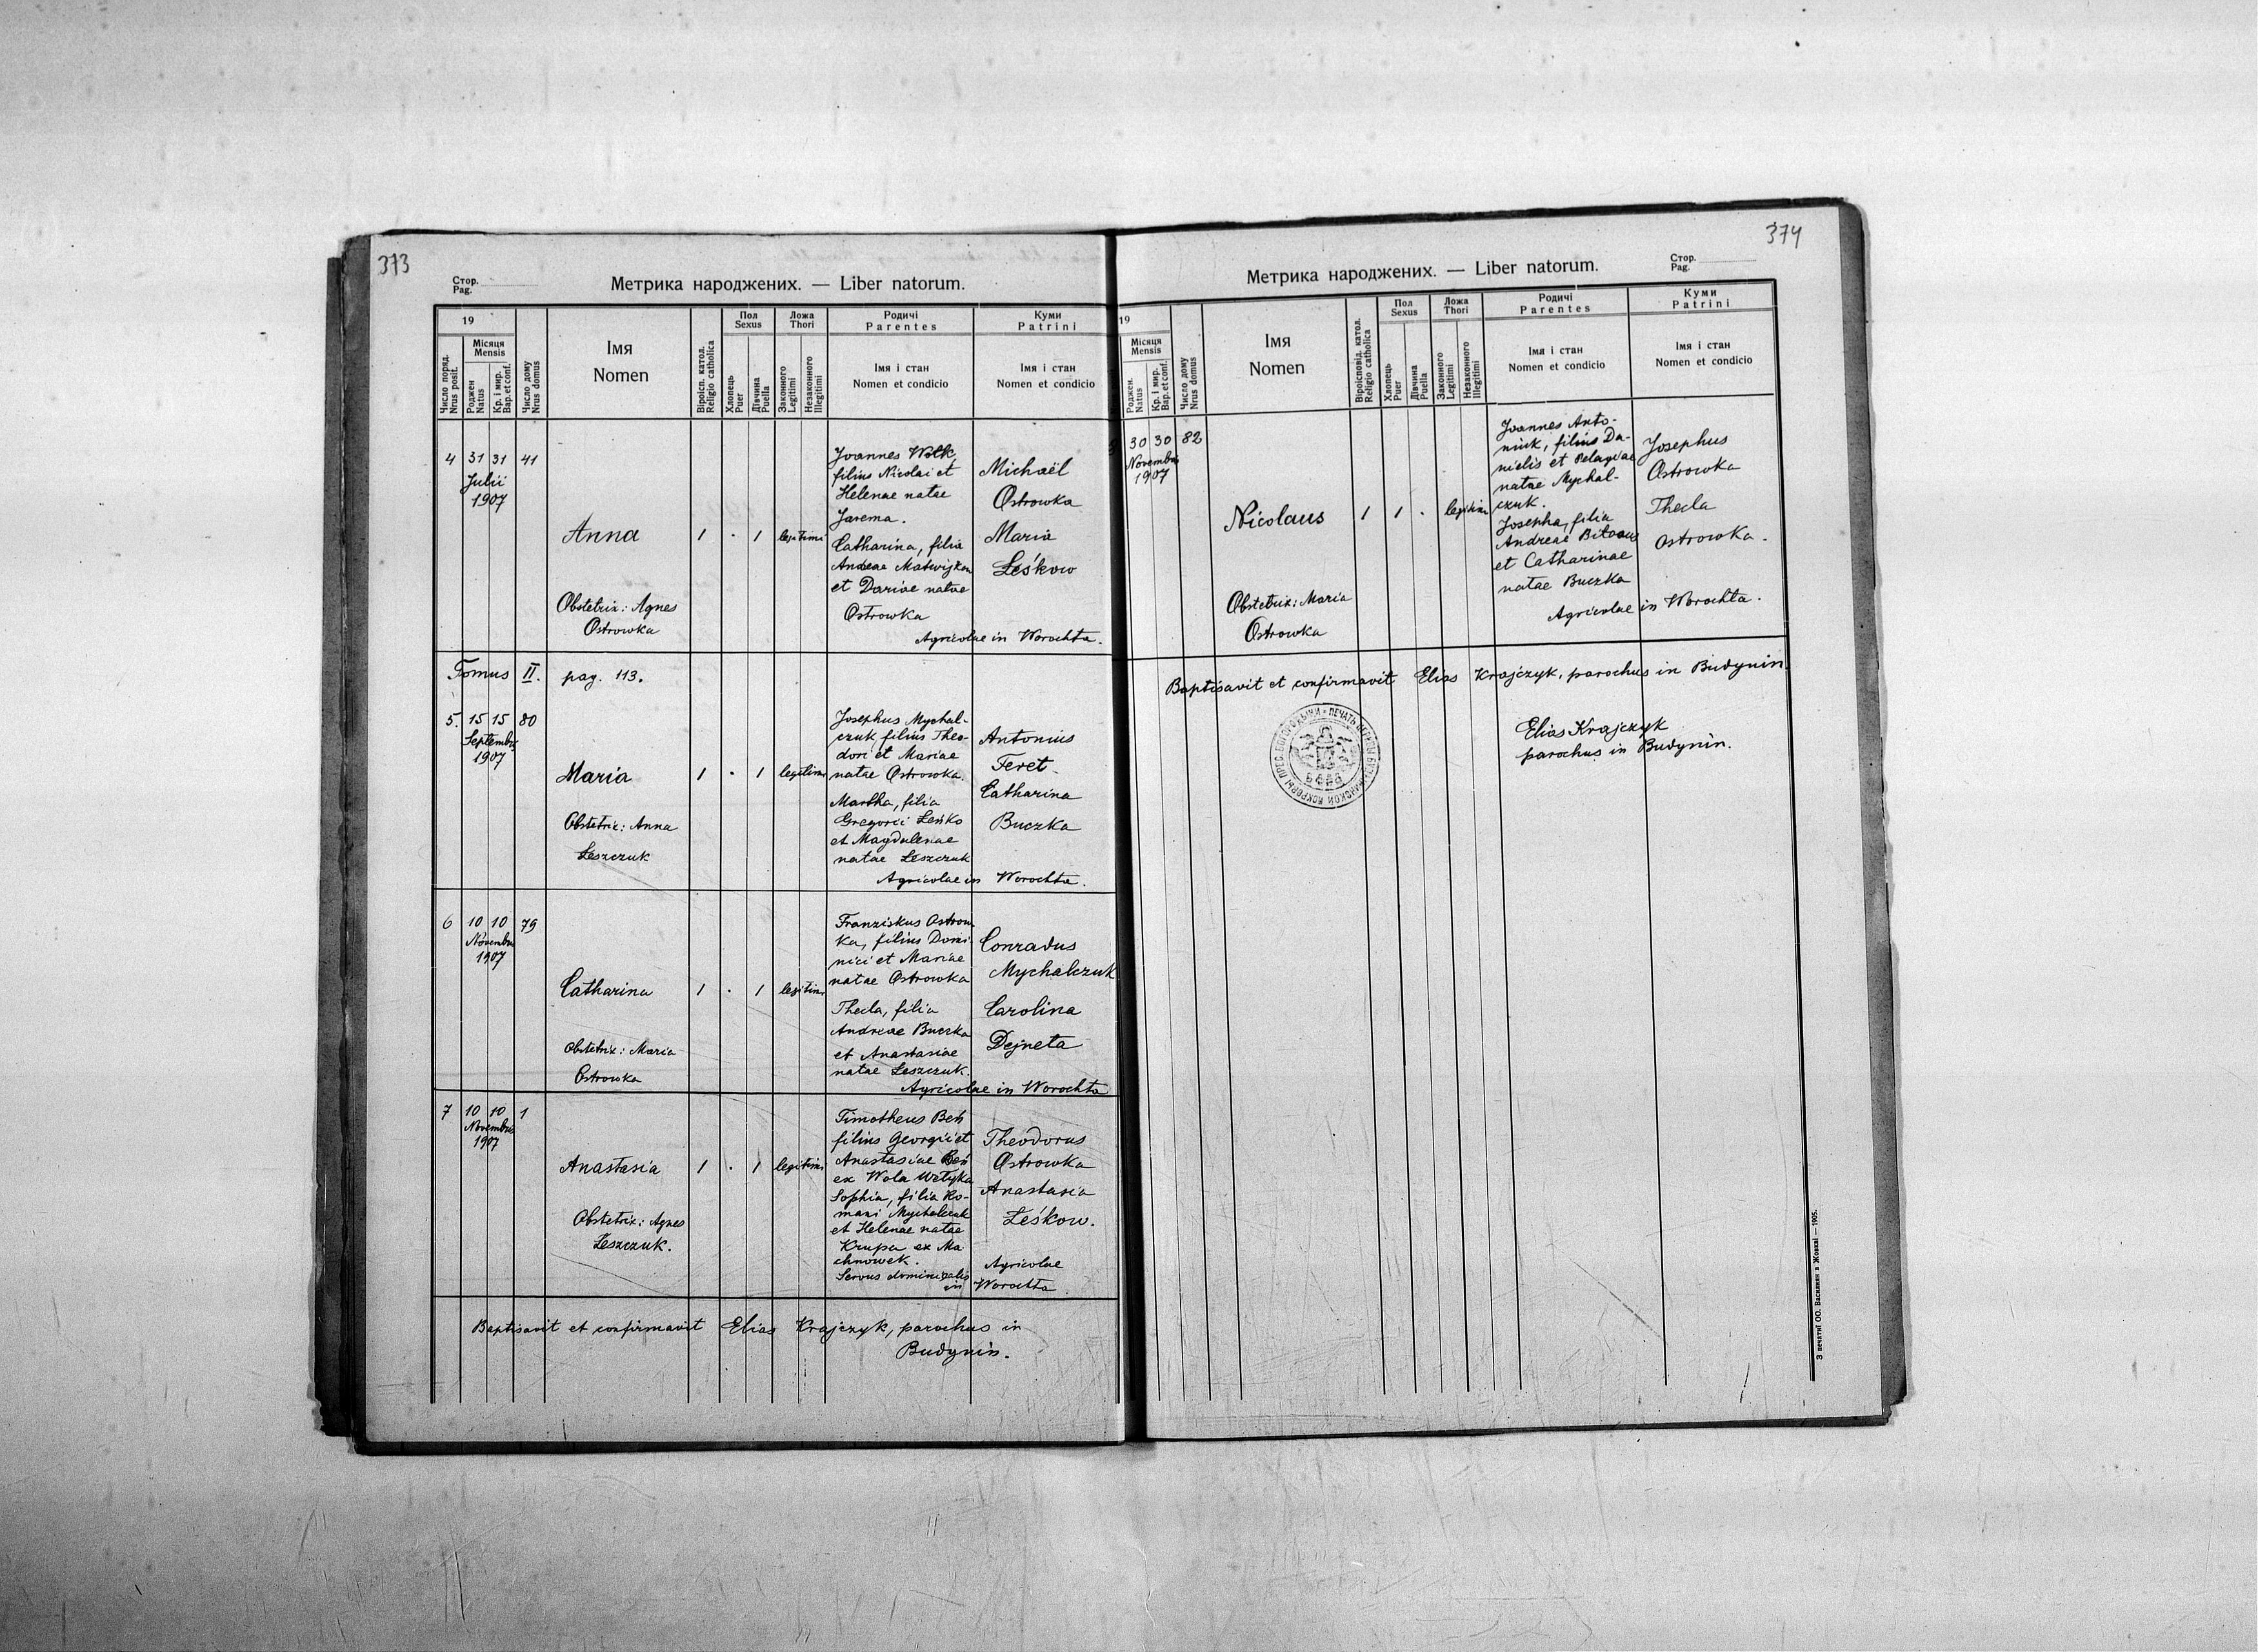 373
Стор.
Pag.
Метрика народжених. — Liber natorum.
19
Число поряд.
Nrus posit.
Місяця
Mensis
Роджен
Natus
Кр. і мир.
Bap. et conf.
Число дому
Nrus domus
Імя
Nomen
Віроісп. катол.
Religio catholica
Пол
Sexus
Хлопець
Puer
Дївчина
Puella
Ложа
Thori
Законного
Legitimi
Незаконного
Illegitimi
Родичі
Parentes
Імя і стан
Nomen et condicio
Куми
Patrini
Імя і стан
Nomen et condicio
4 31 31 41
Julii
1907
Anna
1 . 1 legitimi
Obstetrix: Agnes
Ostrowka
Joannes Wołk
filius Nicolai et
Helenae natae
Jarema.
Catharina, filia
Andreae
et Dariae natae
Ostrowka
Michaël
Ostrowka
Maria
Leśkow
Agricolae in Worochta.
Tomus II. pag. 113.
5. 15 15 80
Septembris
1907
Maria
1 . 1 legitimi
Obstetrix: Anna
Leszczuk
Josephus Mychal-
czuk filius Theo-
dori et Mariae
natae Ostrowka.
Martha, filia
Gregorii Leśko
et Magdalenae
natae Leszczuk
Antonius
Feret
Catharina
Buczka
Agricolae in Worochta.
6 10 10 79
Novembris
1907
Catharina
1 . 1 legitimi
Obstetrix: Maria
Ostrowka
Franziskus Ostrow
ka, filius Domi-
nici et Mariae
natae Ostrowka
Thecla, filia
Andreae Buczka
et Anastasiae
natae Leszczuk.
Conradus
Mychalczuk
Carolina
Dejneta
Agricolae in Worochta
7 10 10 1
Novembris
1907
Anastasia
1 . 1 legitimi
Obstetrix: Agnes
Leszczuk.
Timotheus Beń
filius Georgii et
Anastasiae Beń
ex Wola
Sophia, filia Ro-
mani
et Helenae natae
Krupa ex Ma
chnowek.
Servus dominicalis
in Worochta
Theodorus
Ostrowka
Anastasia
Leśkow.
Agricolae
Baptisavit et confirmavit Elias Krajczyk, parochus in
Budynin.
374
Стор.
Pag.
Метрика народжених. — Liber natorum.
19
Місяця
Mensis
Роджен.
Natus
Кр. і мир.
Bap. et conf.
Число дому
Nrus domus
Імя
Nomen
Віроісповід. катол.
Religio catholica
Пол
Sexus
Хлопець
Puer
Дївчина
Puella
Ложа
Thori
Законного
Legitimi
Незаконного
Illegitimi
Родичі
Parentes
Імя і стан
Nomen et condicio
Куми
Patrini
Імя і стан
Nomen et condicio
30 30 82
Novembris
1907
Nicolaus
1 1 . legitimi
Obstetrix: Maria
Ostrowka
Joannes Anto-
niuk, filius Da-
nielis et Pelagiae
natae Mychal-
czuk.
Josepha, filia
Andreae
et Catharinae
natae Buczka
Josephus
Ostrowka
Thecla
Ostrowka.
Agricolae in Worochta.
Baptisavit et confirmavit Elias Krajczyk, parochus in Budynin.
Elias Krajczyk
parochus in Budynin.
З печатнї ОО. Василиян в Жовкві — 1905.